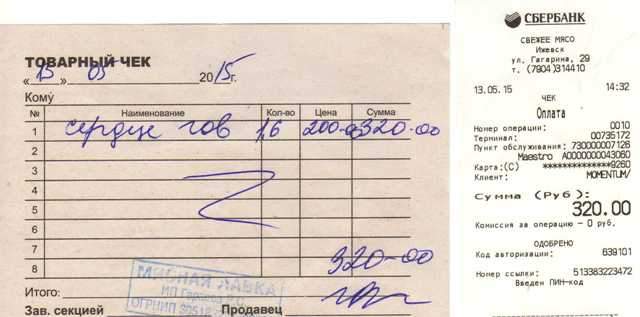 ТОВАРНЫЙ ЧЕК
« 13 » 05 2015г.
Кому
№ Наименование Кол-во Цена Сумма
1 сердце гов 1,6 200-00 320-00
2
3
4
5
6
7
8
320-00
Итого:
Зав. секцией Продавец
МЯСНАЯ ЛАВКА
ИП
ОГРНИП
СБЕРБАНК
СВЕЖЕЕ МЯСО
Ижевск
ул. Гагарина, 29
т. (7904)314410
13.05.15 14:32
ЧЕК
Оплата
Номер операции: 0010
Терминал: 00735172
Пункт обслуживания: 730000007126
Maestro A0000000043060
Карта:(C) ***************9260
Клиент: MOMENTUM/
Сумма (Руб):
320.00
Комиссия за операцию – 0 руб.
ОДОБРЕНО
Код авторизации: 639101
Номер ссылки: 513383223472
Введен ПИН-код